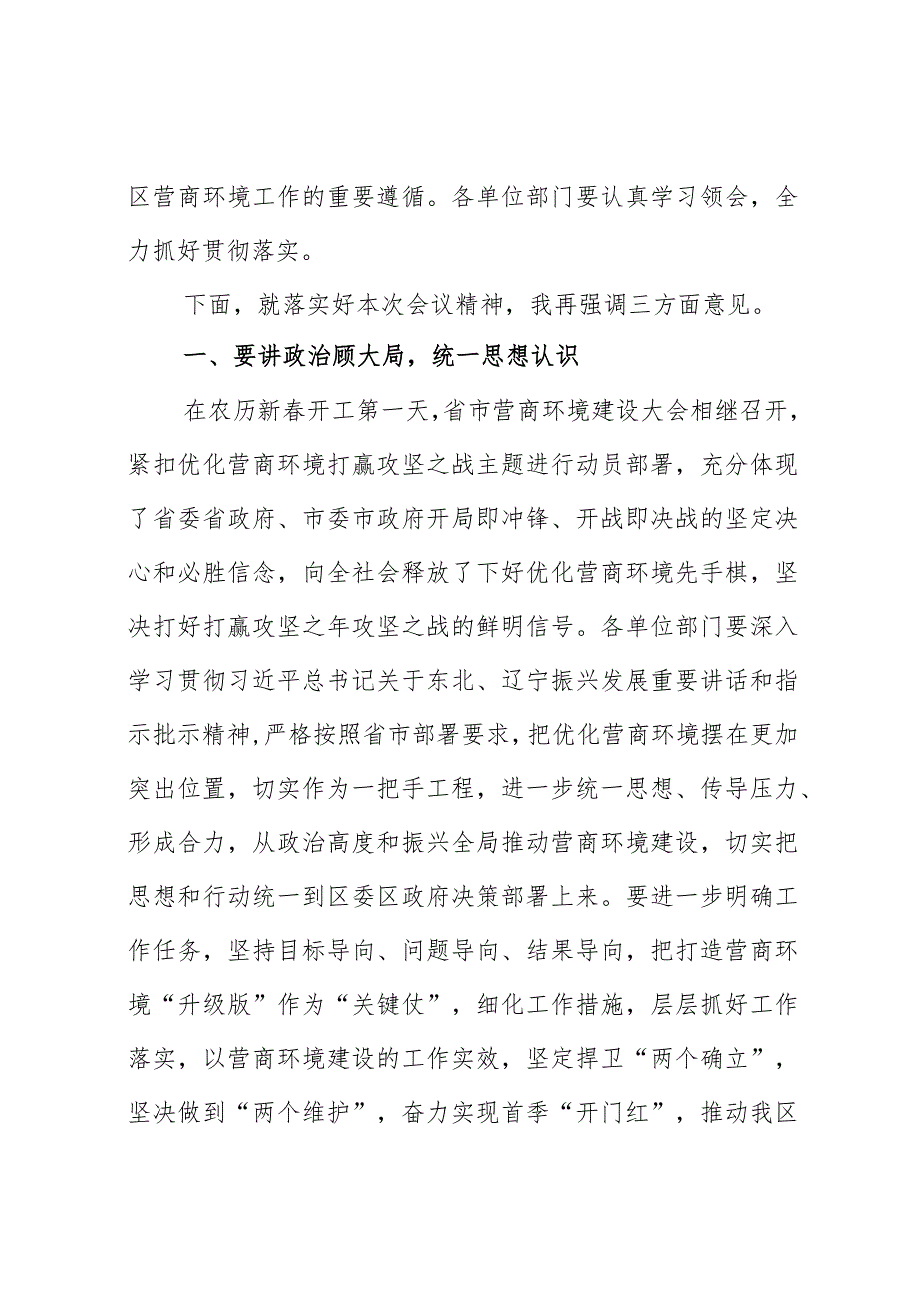 区营商环境工作的重要遵循。各单位部门要认真学习领会，全
力抓好贯彻落实。
下面，就落实好本次会议精神，我再强调三方面意见。
一、要讲政治顾大局，统一思想认识
在农历新春开工第一天,省市营商环境建设大会相继召开，
紧扣优化营商环境打赢攻坚之战主题进行动员部署，充分体现
了省委省政府、市委市政府开局即冲锋、开战即决战的坚定决
心和必胜信念，向全社会释放了下好优化营商环境先手棋，坚
决打好打赢攻坚之年攻坚之战的鲜明信号。各单位部门要深入
学习贯彻习近平总书记关于东北、辽宁振兴发展重要讲话和指
示批示精神,严格按照省市部署要求,把优化营商环境摆在更加
突出位置，切实作为一把手工程，进一步统一思想、传导压力、
形成合力，从政治高度和振兴全局推动营商环境建设，切实把
思想和行动统一到区委区政府决策部署上来。要进一步明确工
作任务，坚持目标导向、问题导向、结果导向，把打造营商环
境“升级版”作为“关键仗”，细化工作措施，层层抓好工作
落实，以营商环境建设的工作实效，坚定捍卫“两个确立”，
坚决做到“两个维护”，奋力实现首季“开门红”，推动我区